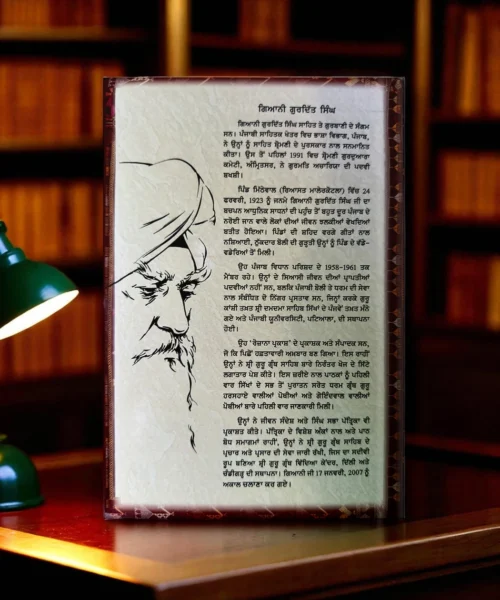 ਗਿਆਨੀ ਗੁਰਦਿੱਤ ਸਿੰਘ
ਗਿਆਨੀ ਗੁਰਦਿੱਤ ਸਿੰਘ ਸਾਹਿਤ ਤੇ ਗੁਰਬਾਣੀ ਦੇ ਸੰਗਮ
ਸਨ। ਪੰਜਾਬੀ ਸਾਹਿਤਕ ਖੇਤਰ ਵਿਚ ਭਾਸ਼ਾ ਵਿਭਾਗ, ਪੰਜਾਬ,
ਨੇ ਉਨ੍ਹਾਂ ਨੂੰ ਸਾਹਿਤ ਸ਼੍ਰੋਮਣੀ ਦੇ ਪੁਰਸਕਾਰ ਨਾਲ ਸਨਮਾਨਿਤ
ਕੀਤਾ। ਉਸ ਤੋਂ ਪਹਿਲਾਂ 1991 ਵਿਚ ਸ਼੍ਰੋਮਣੀ ਗੁਰਦੁਆਰਾ
ਕਮੇਟੀ, ਅੰਮ੍ਰਿਤਸਰ, ਨੇ ਗੁਰਮਤਿ ਅਚਾਰਿਯਾ ਦੀ ਪਦਵੀ
ਬਖਸ਼ੀ।
ਪਿੰਡ ਮਿੱਠੇਵਾਲ (ਰਿਆਸਤ ਮਾਲੇਰਕੋਟਲਾ) ਵਿੱਚ 24
ਫਰਵਰੀ, 1923 ਨੂੰ ਜਨਮੇ ਗਿਆਨੀ ਗੁਰਦਿੱਤ ਸਿੰਘ ਜੀ ਦਾ
ਬਚਪਨ ਆਧੁਨਿਕ ਸਾਧਨਾਂ ਦੀ ਪਹੁੰਚ ਤੋਂ ਬਹੁਤ ਦੂਰ ਪੰਜਾਬ ਦੇ
ਨਰੋਈ ਜਾਨ ਵਾਲੇ ਲੋਕਾਂ ਦੀਆਂ ਜੀਵਨ ਝਲਕੀਆਂ ਵੇਖਦਿਆਂ
ਬਤੀਤ ਹੋਇਆ। ਪਿੰਡਾਂ ਦੀ ਸ਼ਹਿਦ ਵਰਗੇ ਗੀਤਾਂ ਨਾਲ
ਨਸ਼ਿਆਈ, ਟੁੱਣਕਦਾਰ ਬੋਲੀ ਦੀ ਗੁੜ੍ਹਤੀ ਉਨ੍ਹਾਂ ਨੂੰ ਪਿੰਡ ਦੇ ਵੱਡੇ-
ਵਡੇਰਿਆਂ ਤੋਂ ਮਿਲੀ।
ਉਹ ਪੰਜਾਬ ਵਿਧਾਨ ਪਰਿਸ਼ਦ ਦੇ 1958-1961 ਤਕ
ਮੈਂਬਰ ਰਹੇ। ਉਨ੍ਹਾਂ ਦੇ ਸਿਆਸੀ ਜੀਵਨ ਦੀਆਂ ਪ੍ਰਾਪਤੀਆਂ
ਪਦਵੀਆਂ ਨਹੀਂ ਸਨ, ਬਲਕਿ ਪੰਜਾਬੀ ਬੋਲੀ ਤੇ ਧਰਮ ਦੀ ਸੇਵਾ
ਨਾਲ ਸੰਬੰਧਿਤ ਦੇ ਨਿੱਗਰ ਪ੍ਰਸਤਾਵ ਸਨ, ਜਿਨ੍ਹਾਂ ਕਰਕੇ ਗੁਰੂ
ਕਾਂਸ਼ੀ ਤਖ਼ਤ ਸ੍ਰੀ ਦਮਦਮਾ ਸਾਹਿਬ ਸਿੱਖਾਂ ਦੇ ਪੰਜਵੇਂ ਤਖ਼ਤ ਮੰਨੇ
ਗਏ ਅਤੇ ਪੰਜਾਬੀ ਯੂਨੀਵਰਸਿਟੀ, ਪਟਿਆਲਾ, ਦੀ ਸਥਾਪਨਾ
ਹੋਈ।
ਉਹ 'ਰੋਜ਼ਾਨਾ ਪ੍ਰਕਾਸ਼' ਦੇ ਪ੍ਰਕਾਸ਼ਕ ਅਤੇ ਸੰਪਾਦਕ ਸਨ,
ਜੋ ਕਿ ਪਿੱਛੋਂ ਹਫ਼ਤਾਵਾਰੀ ਅਖ਼ਬਾਰ ਬਣ ਗਿਆ। ਇਸ ਰਾਹੀਂ
ਉਨ੍ਹਾਂ ਨੇ ਸ਼੍ਰੀ ਗੁਰੂ ਗ੍ਰੰਥ ਸਾਹਿਬ ਬਾਰੇ ਨਿਰੰਤਰ ਖੋਜ ਦੇ ਸਿੱਟੇ
ਲਗਾਤਾਰ ਪੇਸ਼ ਕੀਤੇ। ਇਸ ਜ਼ਰੀਏ ਨਾਲ ਪਾਠਕਾਂ ਨੂੰ ਪਹਿਲੀ
ਵਾਰ ਸਿੱਖਾਂ ਦੇ ਸਭ ਤੋਂ ਪੁਰਾਤਨ ਸਰੋਤ ਧਰਮ ਗ੍ਰੰਥ ਗੁਰੂ
ਹਰਸਹਾਏ ਵਾਲੀਆਂ ਪੋਥੀਆਂ ਅਤੇ ਗੋਇੰਦਵਾਲ ਵਾਲੀਆਂ
ਪੋਥੀਆਂ ਬਾਰੇ ਪਹਿਲੀ ਵਾਰ ਜਾਣਕਾਰੀ ਮਿਲੀ।
ਉਨ੍ਹਾਂ ਨੇ ਜੀਵਨ ਸੰਦੇਸ਼ ਅਤੇ ਸਿੰਘ ਸਭਾ ਪੱਤ੍ਰਿਕਾ ਵੀ
ਪ੍ਰਕਾਸ਼ਤ ਕੀਤੇ। ਪੱਤ੍ਰਿਕਾ ਦੇ ਵਿਸ਼ੇਸ਼ ਅੰਕਾਂ ਨਾਲ ਅਤੇ ਪਾਠ
ਬੋਧ ਸਮਾਗਮਾਂ ਰਾਹੀਂ, ਉਨ੍ਹਾਂ ਨੇ ਸ਼੍ਰੀ ਗੁਰੂ ਗ੍ਰੰਥ ਸਾਹਿਬ ਦੇ
ਪ੍ਰਚਾਰ ਅਤੇ ਪ੍ਰਸਾਰ ਦੀ ਸੇਵਾ ਜਾਰੀ ਰੱਖੀ, ਜਿਸ ਦਾ ਸਦੀਵੀ
ਰੂਪ ਬਣਿਆ ਸ਼੍ਰੀ ਗੁਰੂ ਗ੍ਰੰਥ ਵਿੱਦਿਆ ਕੇਂਦਰ, ਦਿੱਲੀ ਅਤੇ
ਚੰਡੀਗੜ੍ਹ ਦੀ ਸਥਾਪਨਾ। ਗਿਆਨੀ ਜੀ 17 ਜਨਵਰੀ, 2007 ਨੂੰ
ਅਕਾਲ ਚਲਾਣਾ ਕਰ ਗਏ।